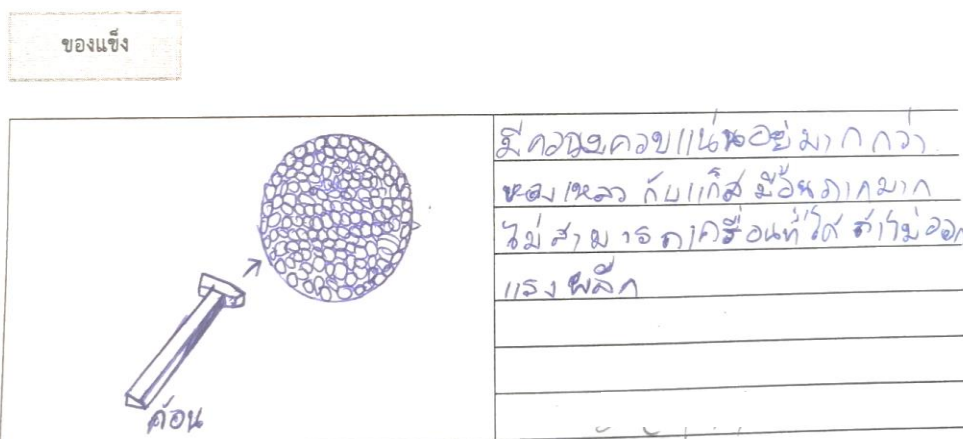 ของแข็ง
มีความควบแน่นอยู่มากกว่า
ของเหลว กับแก๊ส มีอนุภาคมาก
ไม่สามารถเคลื่อนที่ได้ ถ้าไม่ออก
แรงผลัก
ค้อน